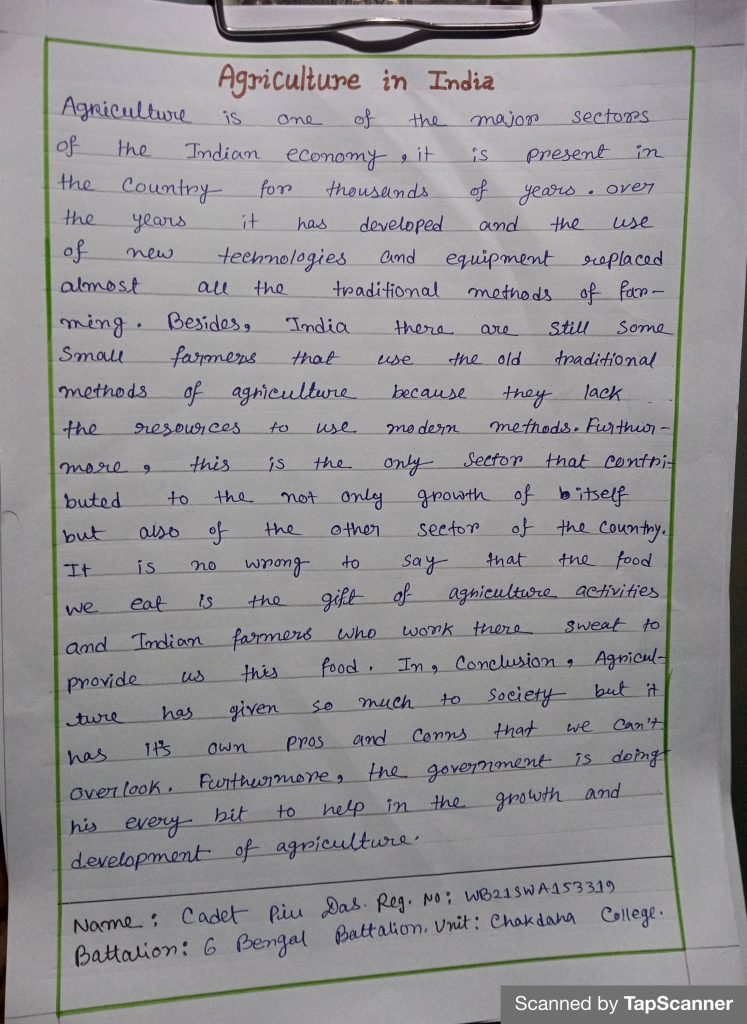 Agriculture in India
Agriculture is one of the major sectors
of the Indian economy, it is present in
the Country for thousands of years. over
the years it has developed and the use
of new technologies and equipment replaced
almost all the traditional methods of far-
ming. Besides, India there are still some
Small farmers that use the old traditional
methods of agriculture because they lack
the resources to use modern methods. Furthur-
more, this is the only Sector that contri-
buted to the not only growth of itself
but also of the other sector of the country.
It is no wrong to say that the food
we eat is the gift of agriculture activities
and Indian farmers who work there sweat to
provide us this food. In, Conclusion, Agricul-
ture has given so much to society but it
has it's own pros and conns that we can't
overlook. Furthurmore, the government is doing
his every bit to help in the growth and
development of agriculture.
Name: Cadet Piu Das. Reg. No: WB21SWA153319
Battalion: 6 Bengal Battalion. Unit: Chakdaha College.
Scanned by TapScanner